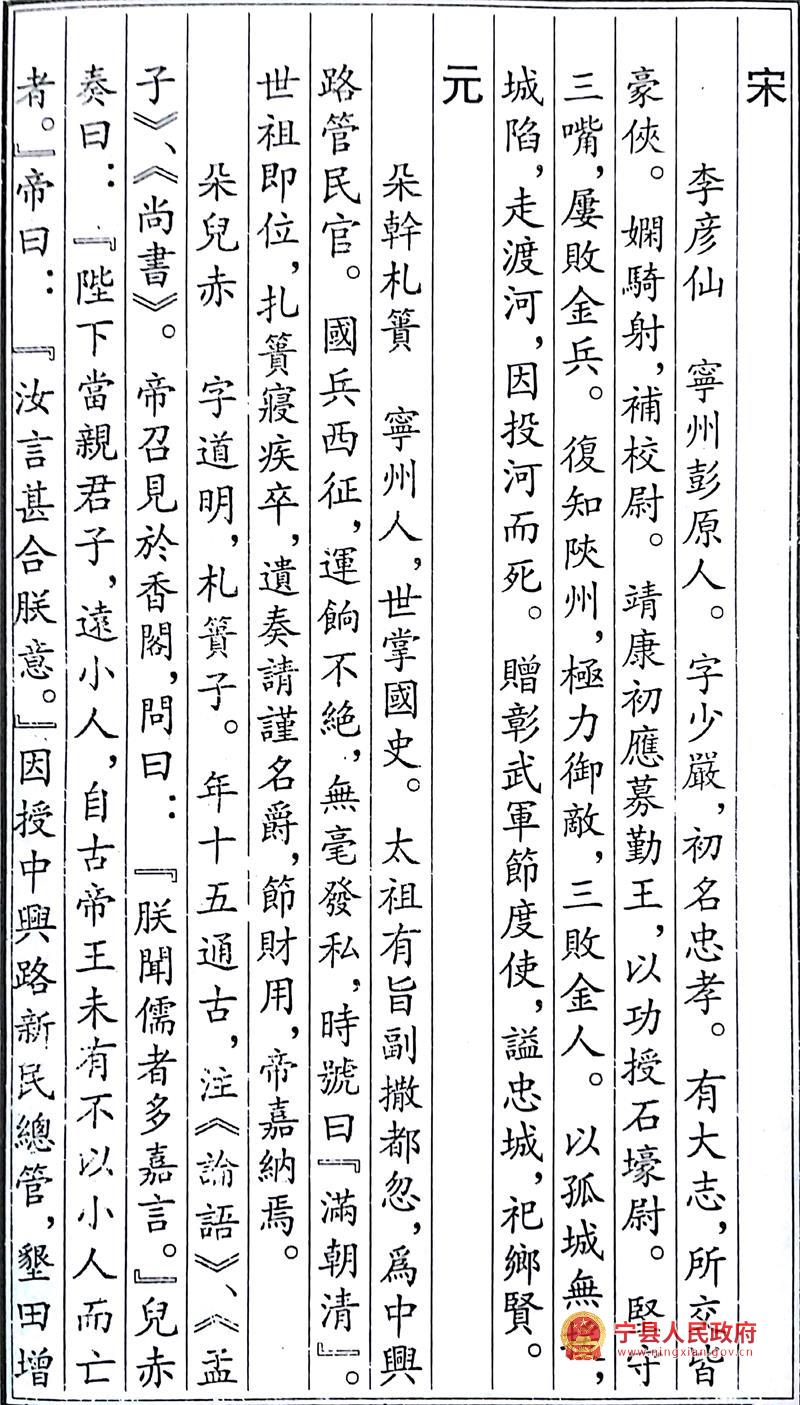 宋
李彦仙　寧州彭原人。字少嚴，初名忠孝。有大志，所交皆
豪俠。嫻騎射，補校尉。靖康初應募勤王，以功授石壕尉。堅守
三嘴，屢敗金兵。復知陜州，極力御敵，三敗金人。以孤城無，
城陷，走渡河，因投河而死。贈彰武軍節度使，謚忠城，祀鄉賢。
元
朵幹札簣　寧州人，世掌國史。太祖有旨副撒都忽，爲中興
路管民官。國兵西征，運餉不絶，無毫發私，時號曰『滿朝清』。
世祖即位，扎簣寢疾卒，遺奏請謹名爵，節財用，帝嘉納焉。
朵兒赤　字道明，札簣子。年十五通古，注《論語》、《孟
子》、《尚書》。帝召見於香閣，問曰：『朕聞儒者多嘉言。』兒赤
奏曰：『陛下當親君子，遠小人，自古帝王未有不以小人而亡
者。』帝曰：『汝言甚合朕意。』因授中興路新民總管，墾田增
宁县人民政府
www.ningxian.gov.cn